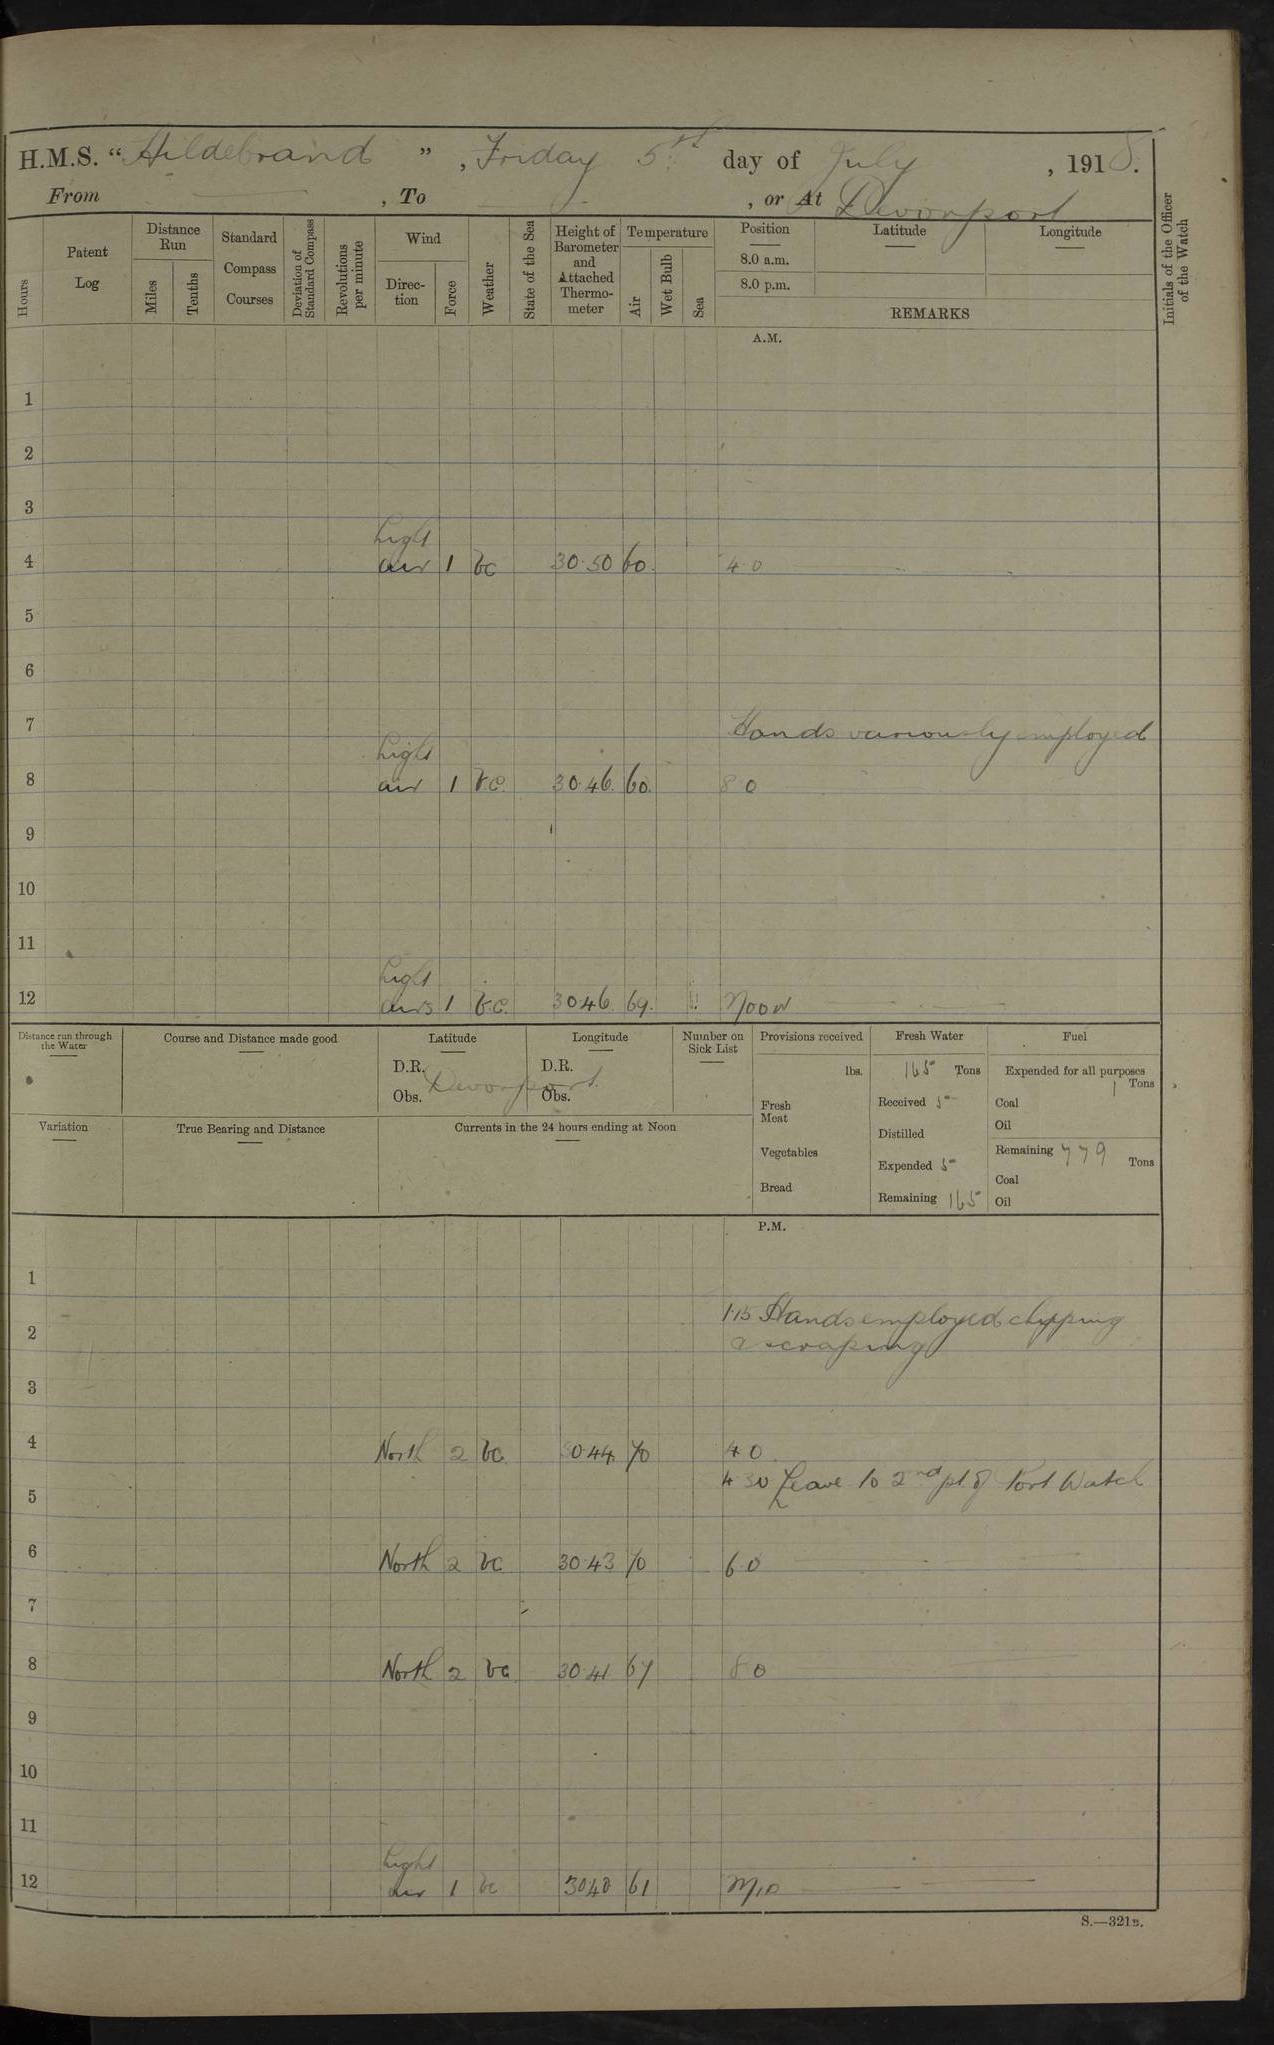 H.M.S. “Hildebrand”, Friday 5th day of July, 1918.
From , To , or At Devonport
Hours
Patent Log
Distance Run
Miles
Tenths
Standard Compass Courses
Deviation of Standard Compass
Revolutions per minute
Wind
Direc-tion
Force
Weather
State of the Sea
Height of Barometer and Attached Thermo-meter
Temperature
Air
Wet Bulb
Sea
Position Latitude Longitude
8.0 a.m.
8.0 p.m.
REMARKS
Initials of the Officer of the Watch
A.M.
1
2
3
Light
4 air 1 bc 30.50 60 4.0
5
6
7 Hands variously employed
Light
8 air 1 b.c. 30.46 60 8.0
9
10
11
Light
12 airs 1 b.c. 30.46 69 Noon
Distance run through the Water
Course and Distance made good
Latitude
D.R.
Obs.
Devonport
Longitude
D.R.
Obs.
Number on Sick List
Provisions received
lbs.
Fresh Meat
Vegetables
Bread
Fresh Water
165 Tons
Received 5
Distilled
Expended 5
Remaining 165
Fuel
Expended for all purposes
1 Tons
Coal
Oil
Remaining 779 Tons
Coal
Oil
Variation
True Bearing and Distance
Currents in the 24 hours ending at Noon
P.M.
1
1.15 Hands employed chipping
2 & scraping
3
4 North 2 bc 30.44 70 4.0
4.30 Leave to 2nd pt of Port Watch
5
6 North 2 bc 30.43 70 6.0
7
8 North 2 bc 30.41 67 8.0
9
10
11
Light
12 air 1 bc 30.40 61 Mid
S.—321B.